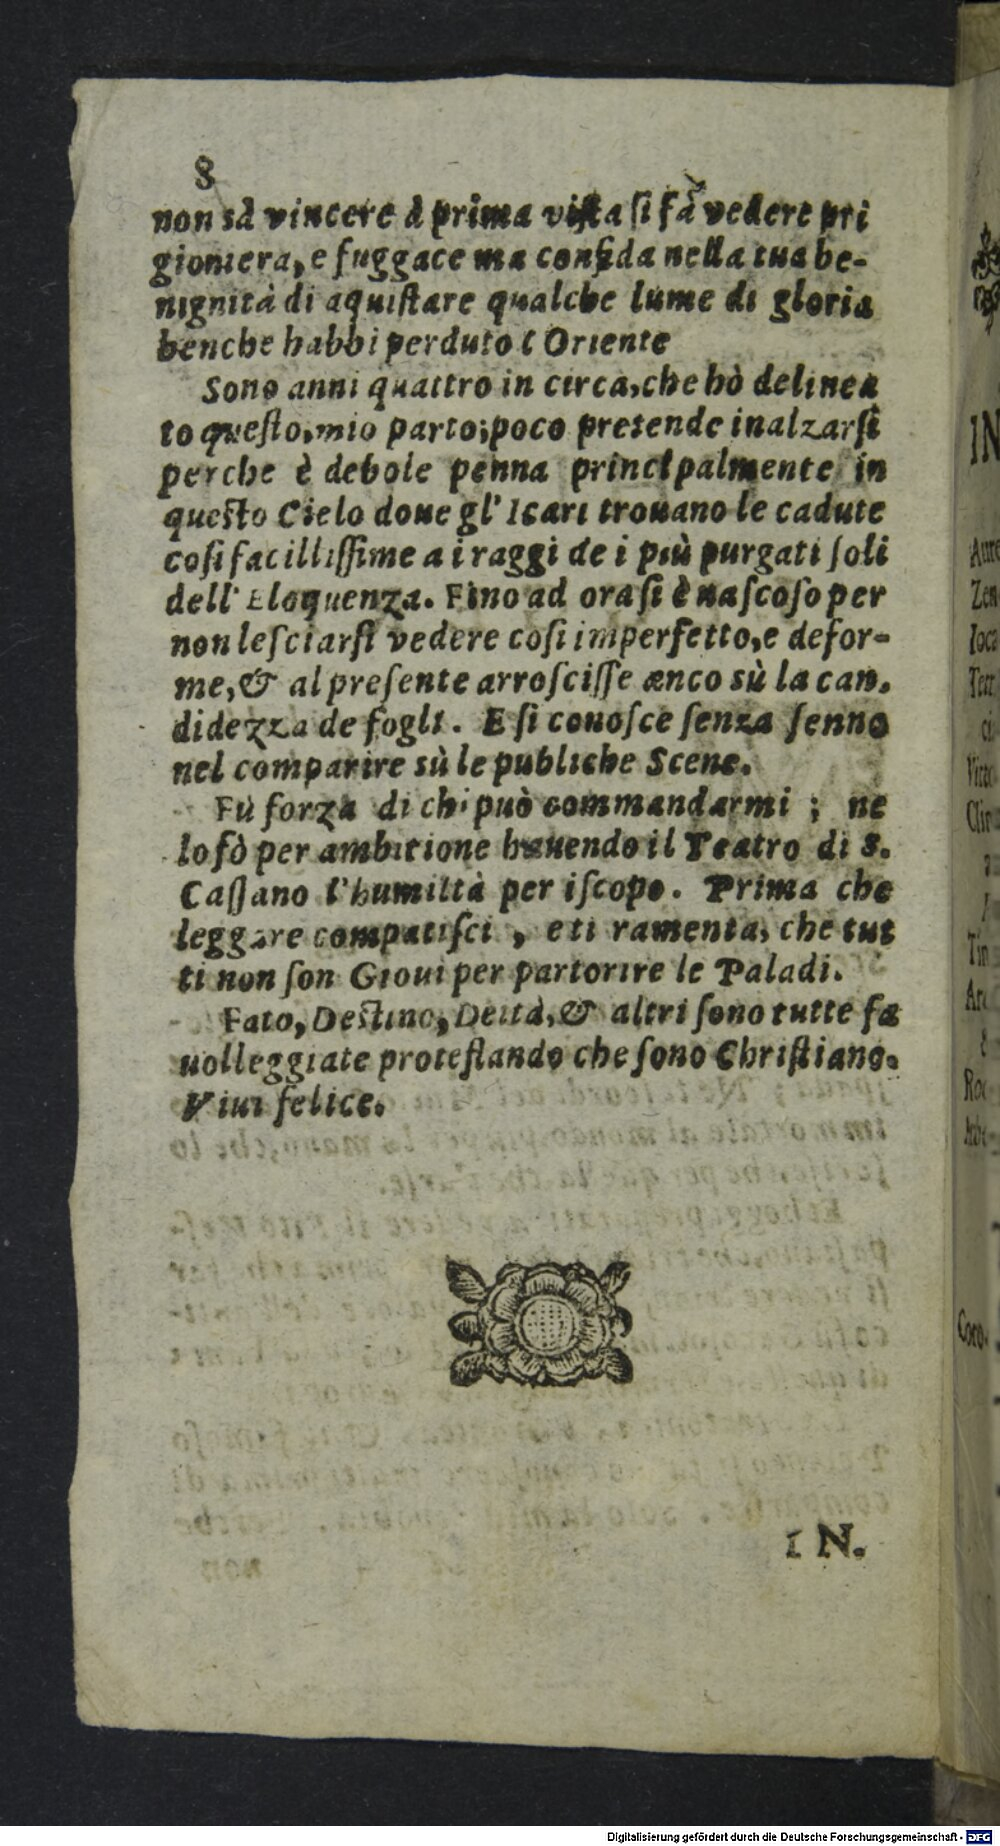 8
non sà vincere à prima vista si fà vedere pri
gioniera, e fuggace ma confida nella tua be-
nignità di aquiſtare qualche lume di gloria
benche habbi perduto l Oriente
Sono anni quattro in circa, che hò delinea
to queſto, mio parto; poco pretende inalzarſi
perche è debole penna principalmente in
queſto Cielo doue gl' Icari trouano le cadute
coſi facilliſſime a i raggi de i più purgati ſoli
dell' Eloquenza. Fino ad ora ſi è naſcoſo per
non leſciarſi vedere coſi imperfetto, e defor-
me, & al preſente arroſciſſe anco sù la can.
didezza de fogli. E ſi conoſce ſenza ſenno
nel comparire sù le publiche Scene.
Fù forza di chi può commandarmi ; ne
lo fò per ambitione hauendo il Teatro di S.
Caſſano l'humiltà per iſcopo. Prima che
leggere compatiſci , e ti ramenta, che tut
ti non ſon Gioui per partorire le Paladi.
Fato, Deſtino, Deità, & altri ſono tutte fa
uolleggiate proteſtando che ſono Chriſtiano.
Viui felice.
IN.
Digitalisierung gefördert durch die Deutsche Forschungsgemeinschaft - DFG